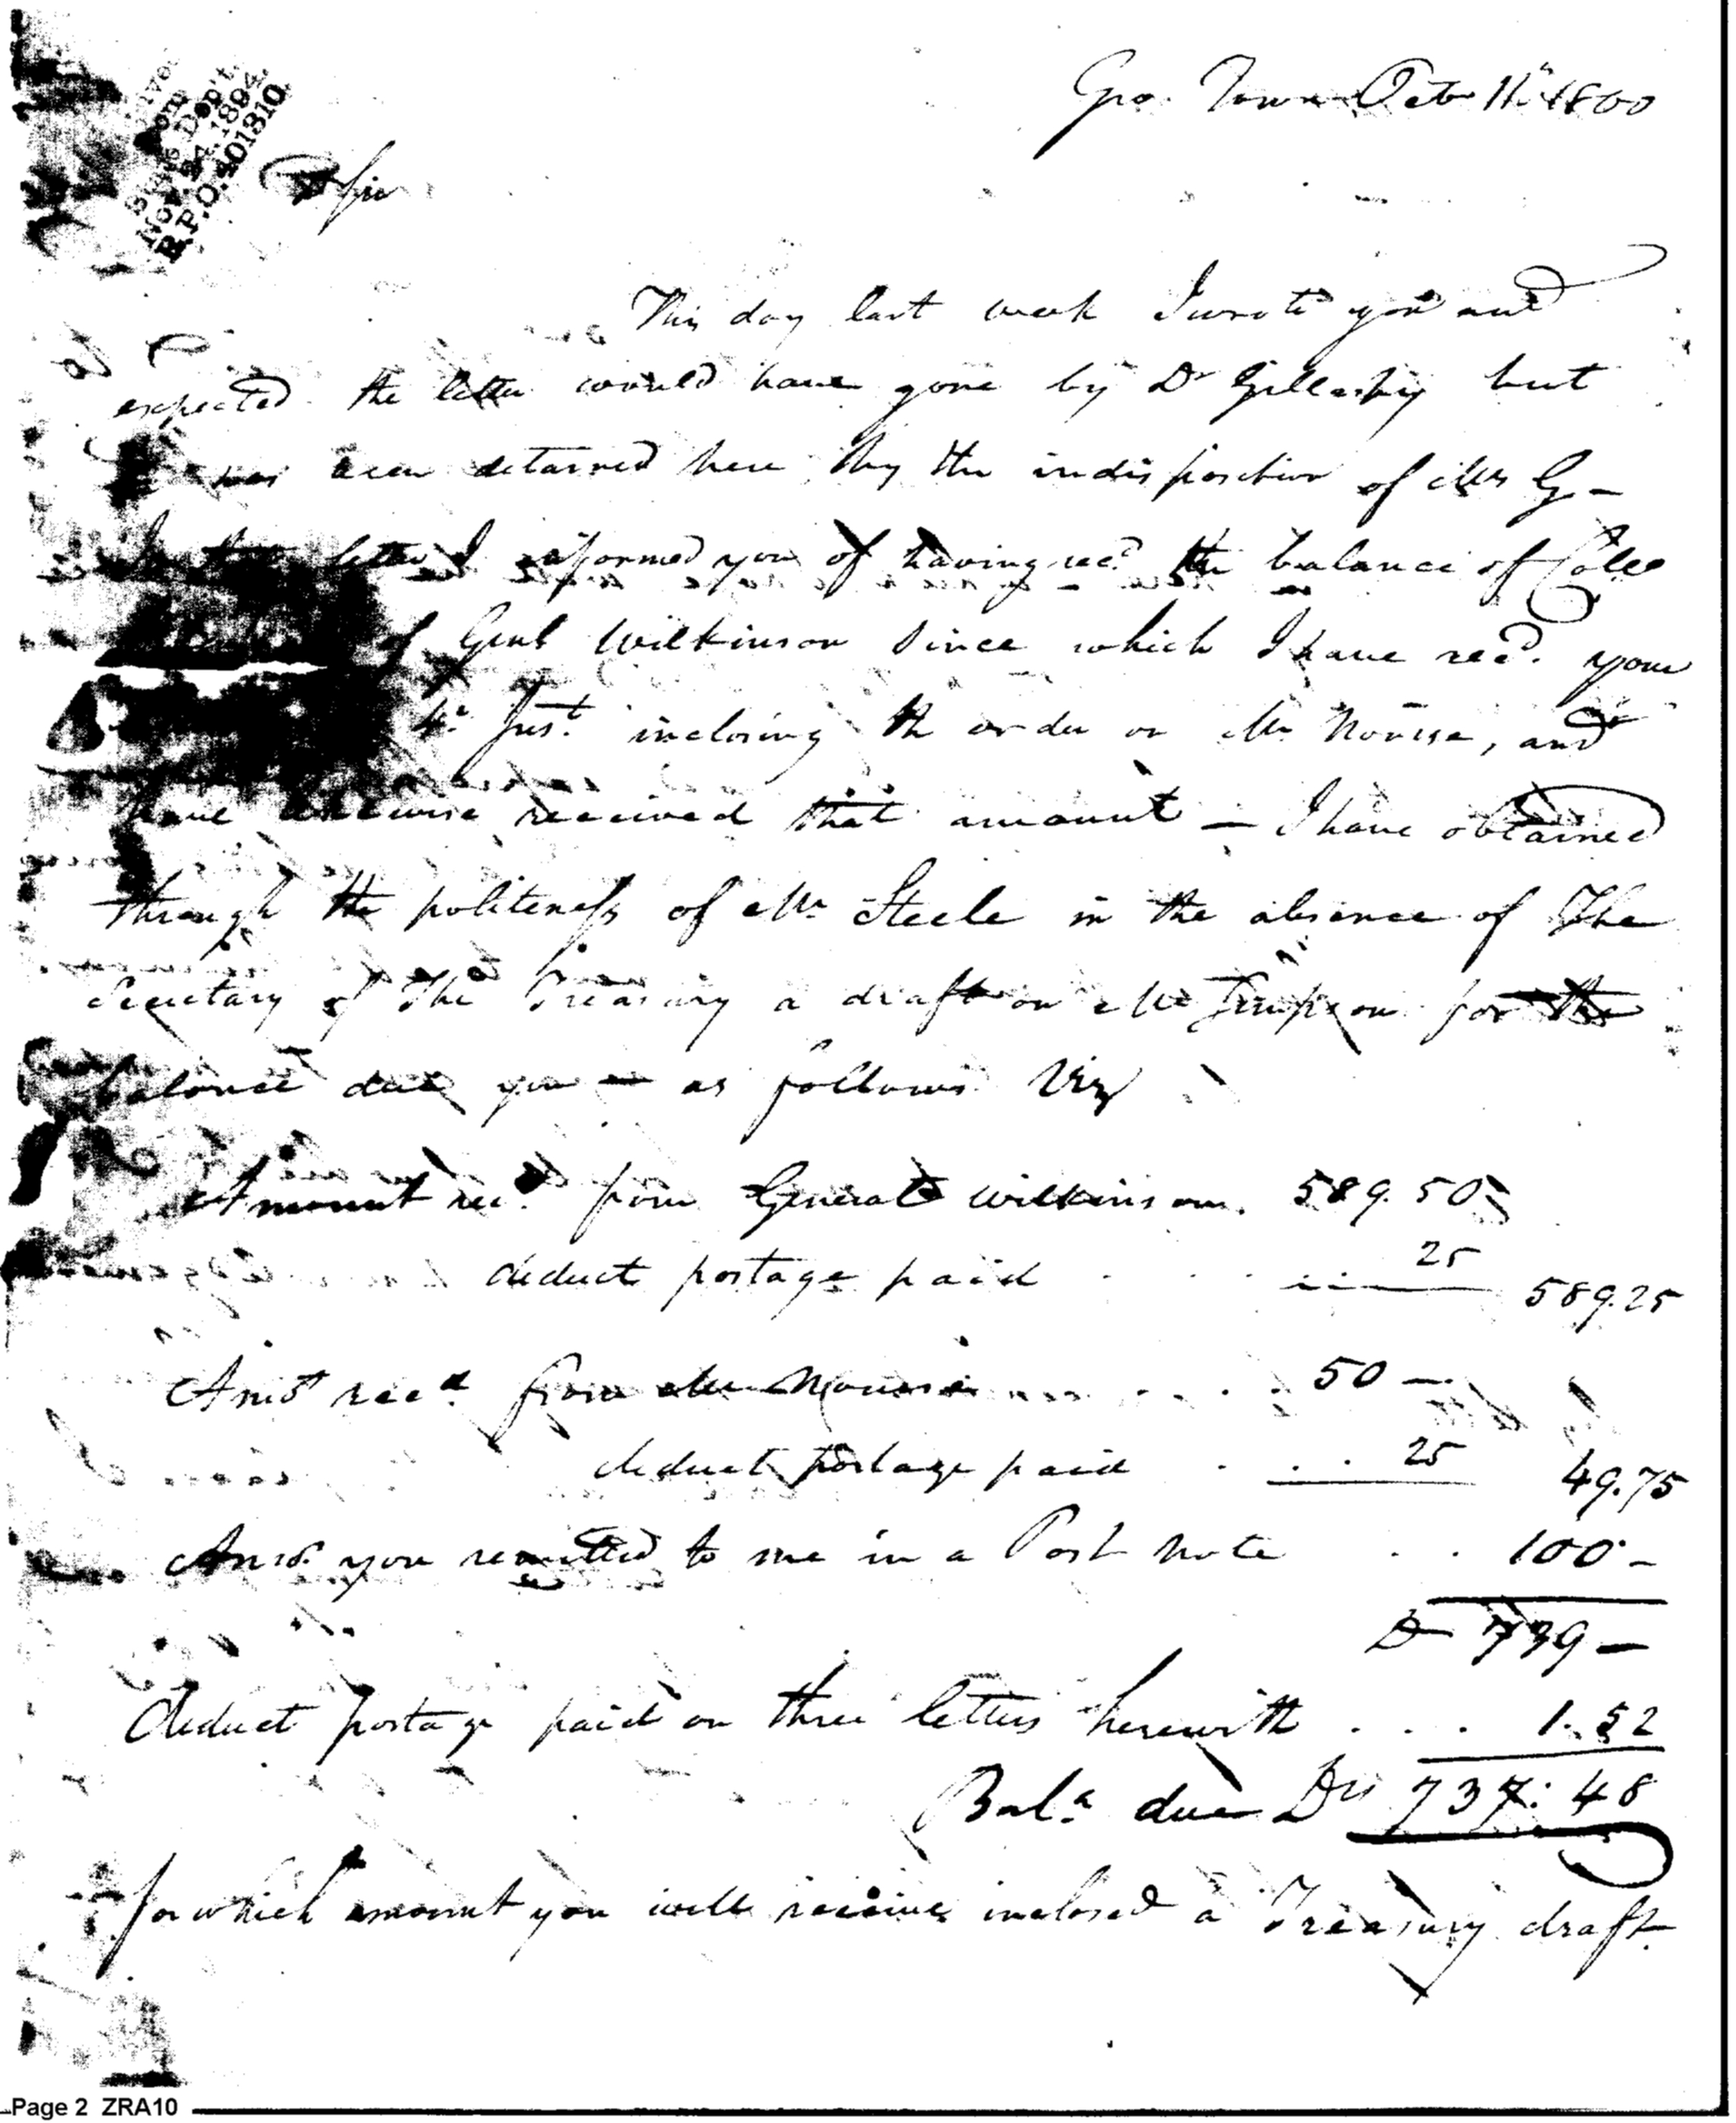 Geo. Town Octo 11th 1800
State Dep't.
Nov. 24. 1894.
R.P.O. 401310.
Sir
This day last week I wrote you and
expected the letter would have gone by Dr Gillaspy but
has been detained here by the indisposition of Mrs G—
letter I informed you of having recd. the balance of Colo
of Genl Wilkinson since which I have recd. your
4th Inst. inclosing the order on Mr Nourse, and
have likewise received that amount — I have obtained
through the politeness of Mr Steele in the absence of The
Secretary of The Treasury a draft on Mr Simpson for the
balance due you — as follows Viz
Amount recd. from General Wilkinson. 589.50
deduct postage paid 25
589.25
Amt recd from Mr Nourse 50 —
deduct postage paid . . . 25
49.75
Amt. you remitted to me in a Post note . . 100 —
D 739 —
deduct postage paid on three letters herewith . . . 1.52
Bala. due Drs 737:48
for which amount you will receive inclosed a Treasury draft
Page 2 ZRA10